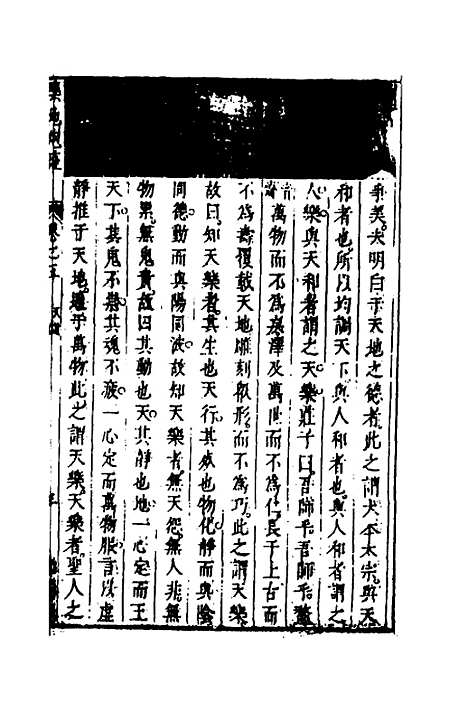 爭美夫明白于天地之德者此之謂大本大宗與天
和者也所以均調天下與人和者也與人和者謂之
人樂與天和者謂之天樂莊子曰吾師乎吾師乎𩐎
萬物而不為戾澤及萬世而不為仁長于上古而
不為壽覆載天地雕刻衆形而不為巧此之謂天樂
故曰知天樂者其生也天行其死也物化靜而與陰
同德動而與陽同波故知天樂者無天怨無人非無
物累無鬼責故曰其動也天其靜也地一心定而王
天下其鬼不祟其魂不疲一心定而萬物服言以虛
靜推于天地通乎萬物此之謂天樂天樂者聖人之
卷之五